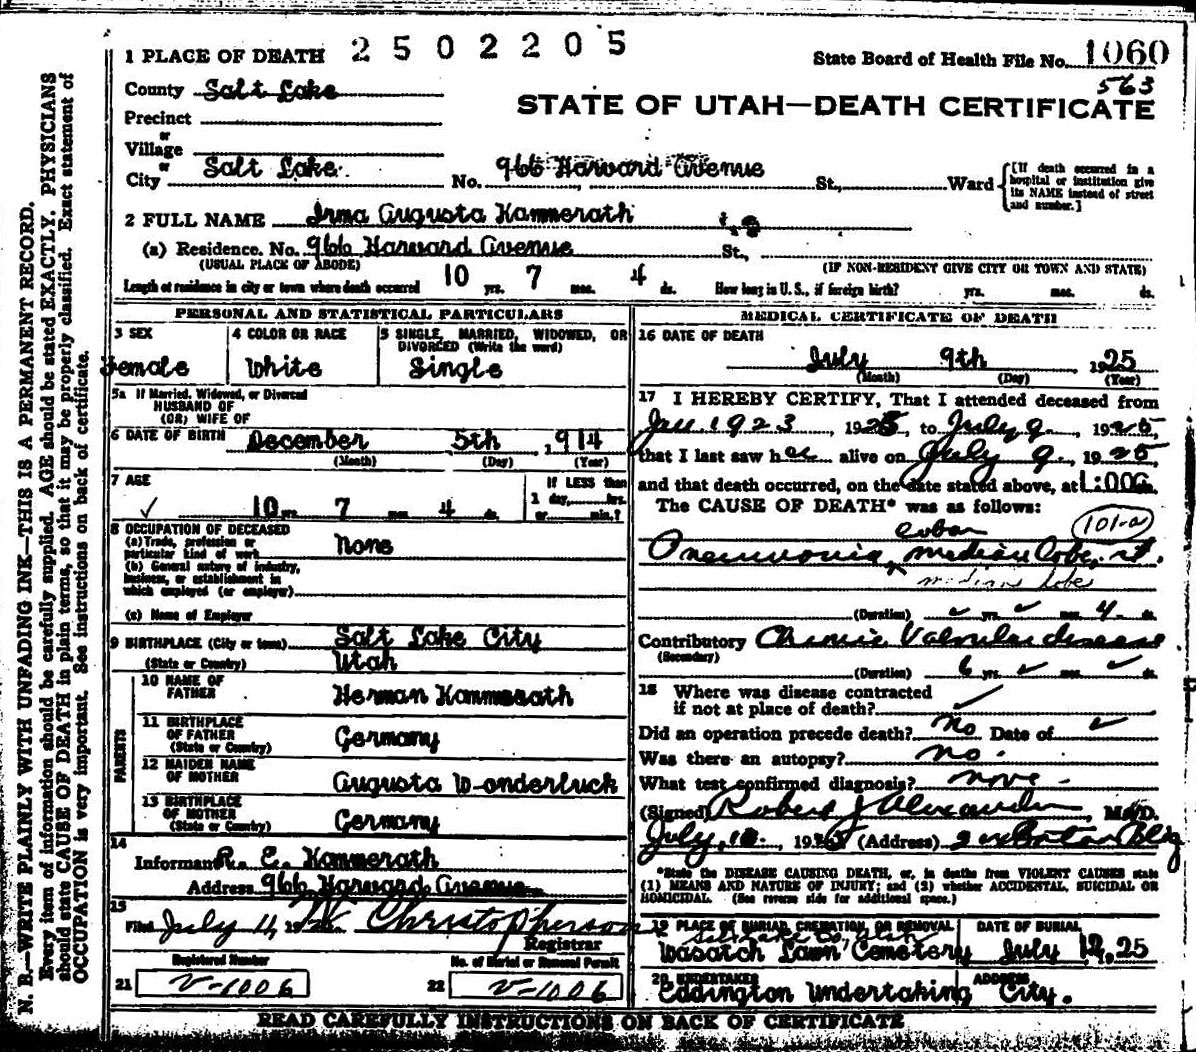 1 PLACE OF DEATH 2502205 State Board of Health File No. 1060
563
County Salt Lake
STATE OF UTAH—DEATH CERTIFICATE
Precinct
or
Village
or
City Salt Lake No. 966 Harvard Avenue St., Ward
[If death occurred in a hospital or institution give its NAME instead of street and number.]
2 FULL NAME Irma Augusta Kammerath
(a) Residence. No. 966 Harvard Avenue St.,
(USUAL PLACE OF ABODE) (IF NON-RESIDENT GIVE CITY OR TOWN AND STATE)
Length of residence in city or town where death occurred 10 yrs. 7 mos. 4 ds. How long in U. S., if foreign birth? yrs. mos. ds.
PERSONAL AND STATISTICAL PARTICULARS
3 SEX
Female
4 COLOR OR RACE
White
5 SINGLE, MARRIED, WIDOWED, OR
DIVORCED (Write the word)
Single
5a If Married, Widowed, or Divorced
HUSBAND OF
(OR) WIFE OF
6 DATE OF BIRTH December 5th, 1914
(Month) (Day) (Year)
7 AGE
10 yrs. 7 mos. 4 ds.
If LESS than
1 day, hrs.
or min.?
8 OCCUPATION OF DECEASED
(a) Trade, profession or
particular kind of work None
(b) General nature of industry,
business, or establishment in
which employed (or employer)
(c) Name of Employer
9 BIRTHPLACE (City or town) Salt Lake City
(State or Country) Utah
PARENTS
10 NAME OF
FATHER Herman Kammerath
11 BIRTHPLACE
OF FATHER
(State or Country) Germany
12 MAIDEN NAME
OF MOTHER Augusta W-onderluck
13 BIRTHPLACE
OF MOTHER
(State or Country) Germany
14
Informant R. E. Kammerath
Address 966 Harvard Avenue
15
Filed July 11, 19 Christopherson
Registrar
Registered Number No. of Burial or Removal Permit
21 V-1006 22 V-1006
MEDICAL CERTIFICATE OF DEATH
16 DATE OF DEATH
July 9th 1925
(Month) (Day) (Year)
17 I HEREBY CERTIFY, That I attended deceased from
Jan. 1923, 1925, to July 9, 1925,
that I last saw her alive on July 9, 1925,
and that death occurred, on the date stated above, at 1:00
The CAUSE OF DEATH* was as follows:
lobar 101-a
Pneumonia, median lobe, rt.
median lobe
(Duration) yrs. mos. 4 ds.
Contributory Chronic Valvular disease
(Secondary)
(Duration) 6 yrs. mos. ds.
18 Where was disease contracted
if not at place of death?
Did an operation precede death? No Date of
Was there an autopsy? no.
What test confirmed diagnosis? none -
(Signed) Robert J Alexander, M. D.
July, 10, 1925 (Address) Bldg
*State the DISEASE CAUSING DEATH, or, in deaths from VIOLENT CAUSES state
(1) MEANS AND NATURE OF INJURY; and (2) whether ACCIDENTAL, SUICIDAL OR
HOMICIDAL. (See reverse side for additional space.)
19 PLACE OF BURIAL, CREMATION, OR REMOVAL DATE OF BURIAL
Wasatch Lawn Cemetery July 12, 25
20 UNDERTAKER ADDRESS
Eddington Undertaking City.
READ CAREFULLY INSTRUCTIONS ON BACK OF CERTIFICATE
N. B.—WRITE PLAINLY WITH UNFADING INK—THIS IS A PERMANENT RECORD.
Every item of information should be carefully supplied. AGE should be stated EXACTLY. PHYSICIANS
should state CAUSE OF DEATH in plain terms, so that it may be properly classified. Exact statement of
OCCUPATION is very important. See instructions on back of certificate.